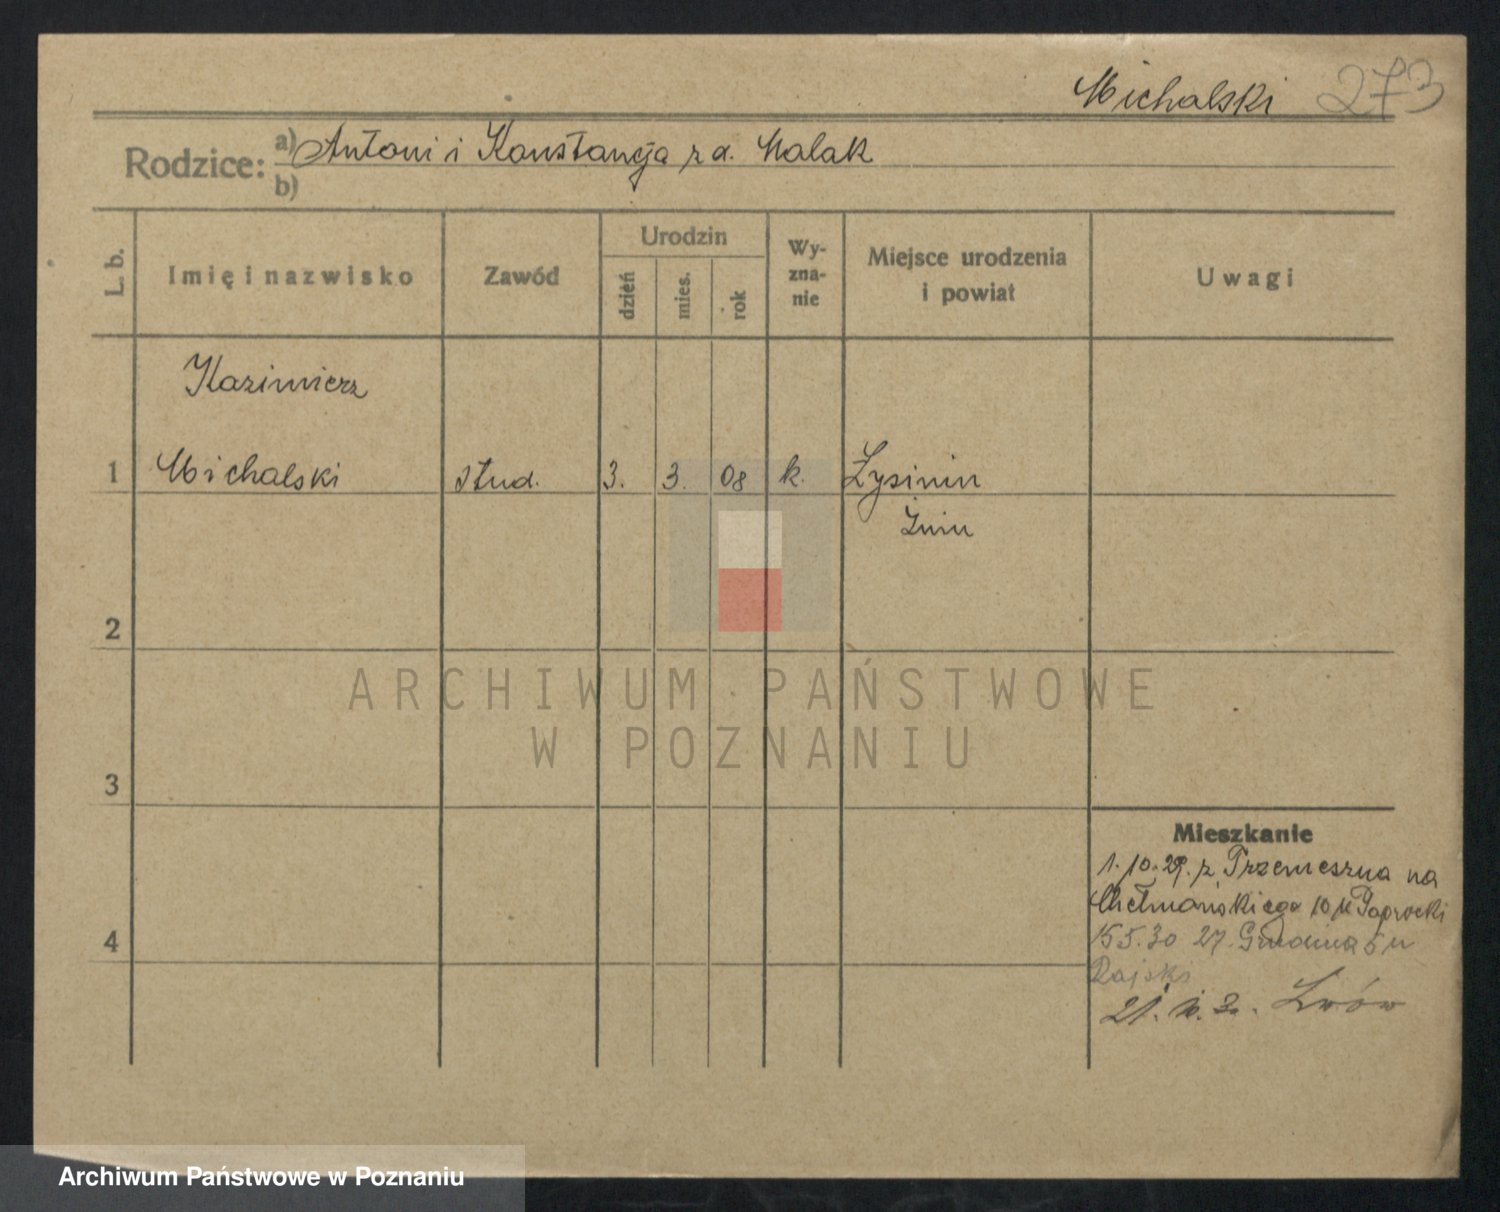 Michalski 273
Rodzice: a) Antoni i Konstancja z d. Malak
b)
L. b. Imię i nazwisko Zawód Urodzin dzień mies. rok Wy-zna-nie Miejsce urodzenia i powiat Uwagi
Kazimierz
1 Michalski stud. 3. 3. 08 k. Łysinin
Żnin
2
ARCHIWUM PAŃSTWOWE
W POZNANIU
3
Mieszkanie
1.10.29. z Trzemeszna na
Chełmońskiego 10 u Paprocki
4
15 5.30 27 Grudnia 5 u
Rajski
21. Lwów
Archiwum Państwowe w Poznaniu